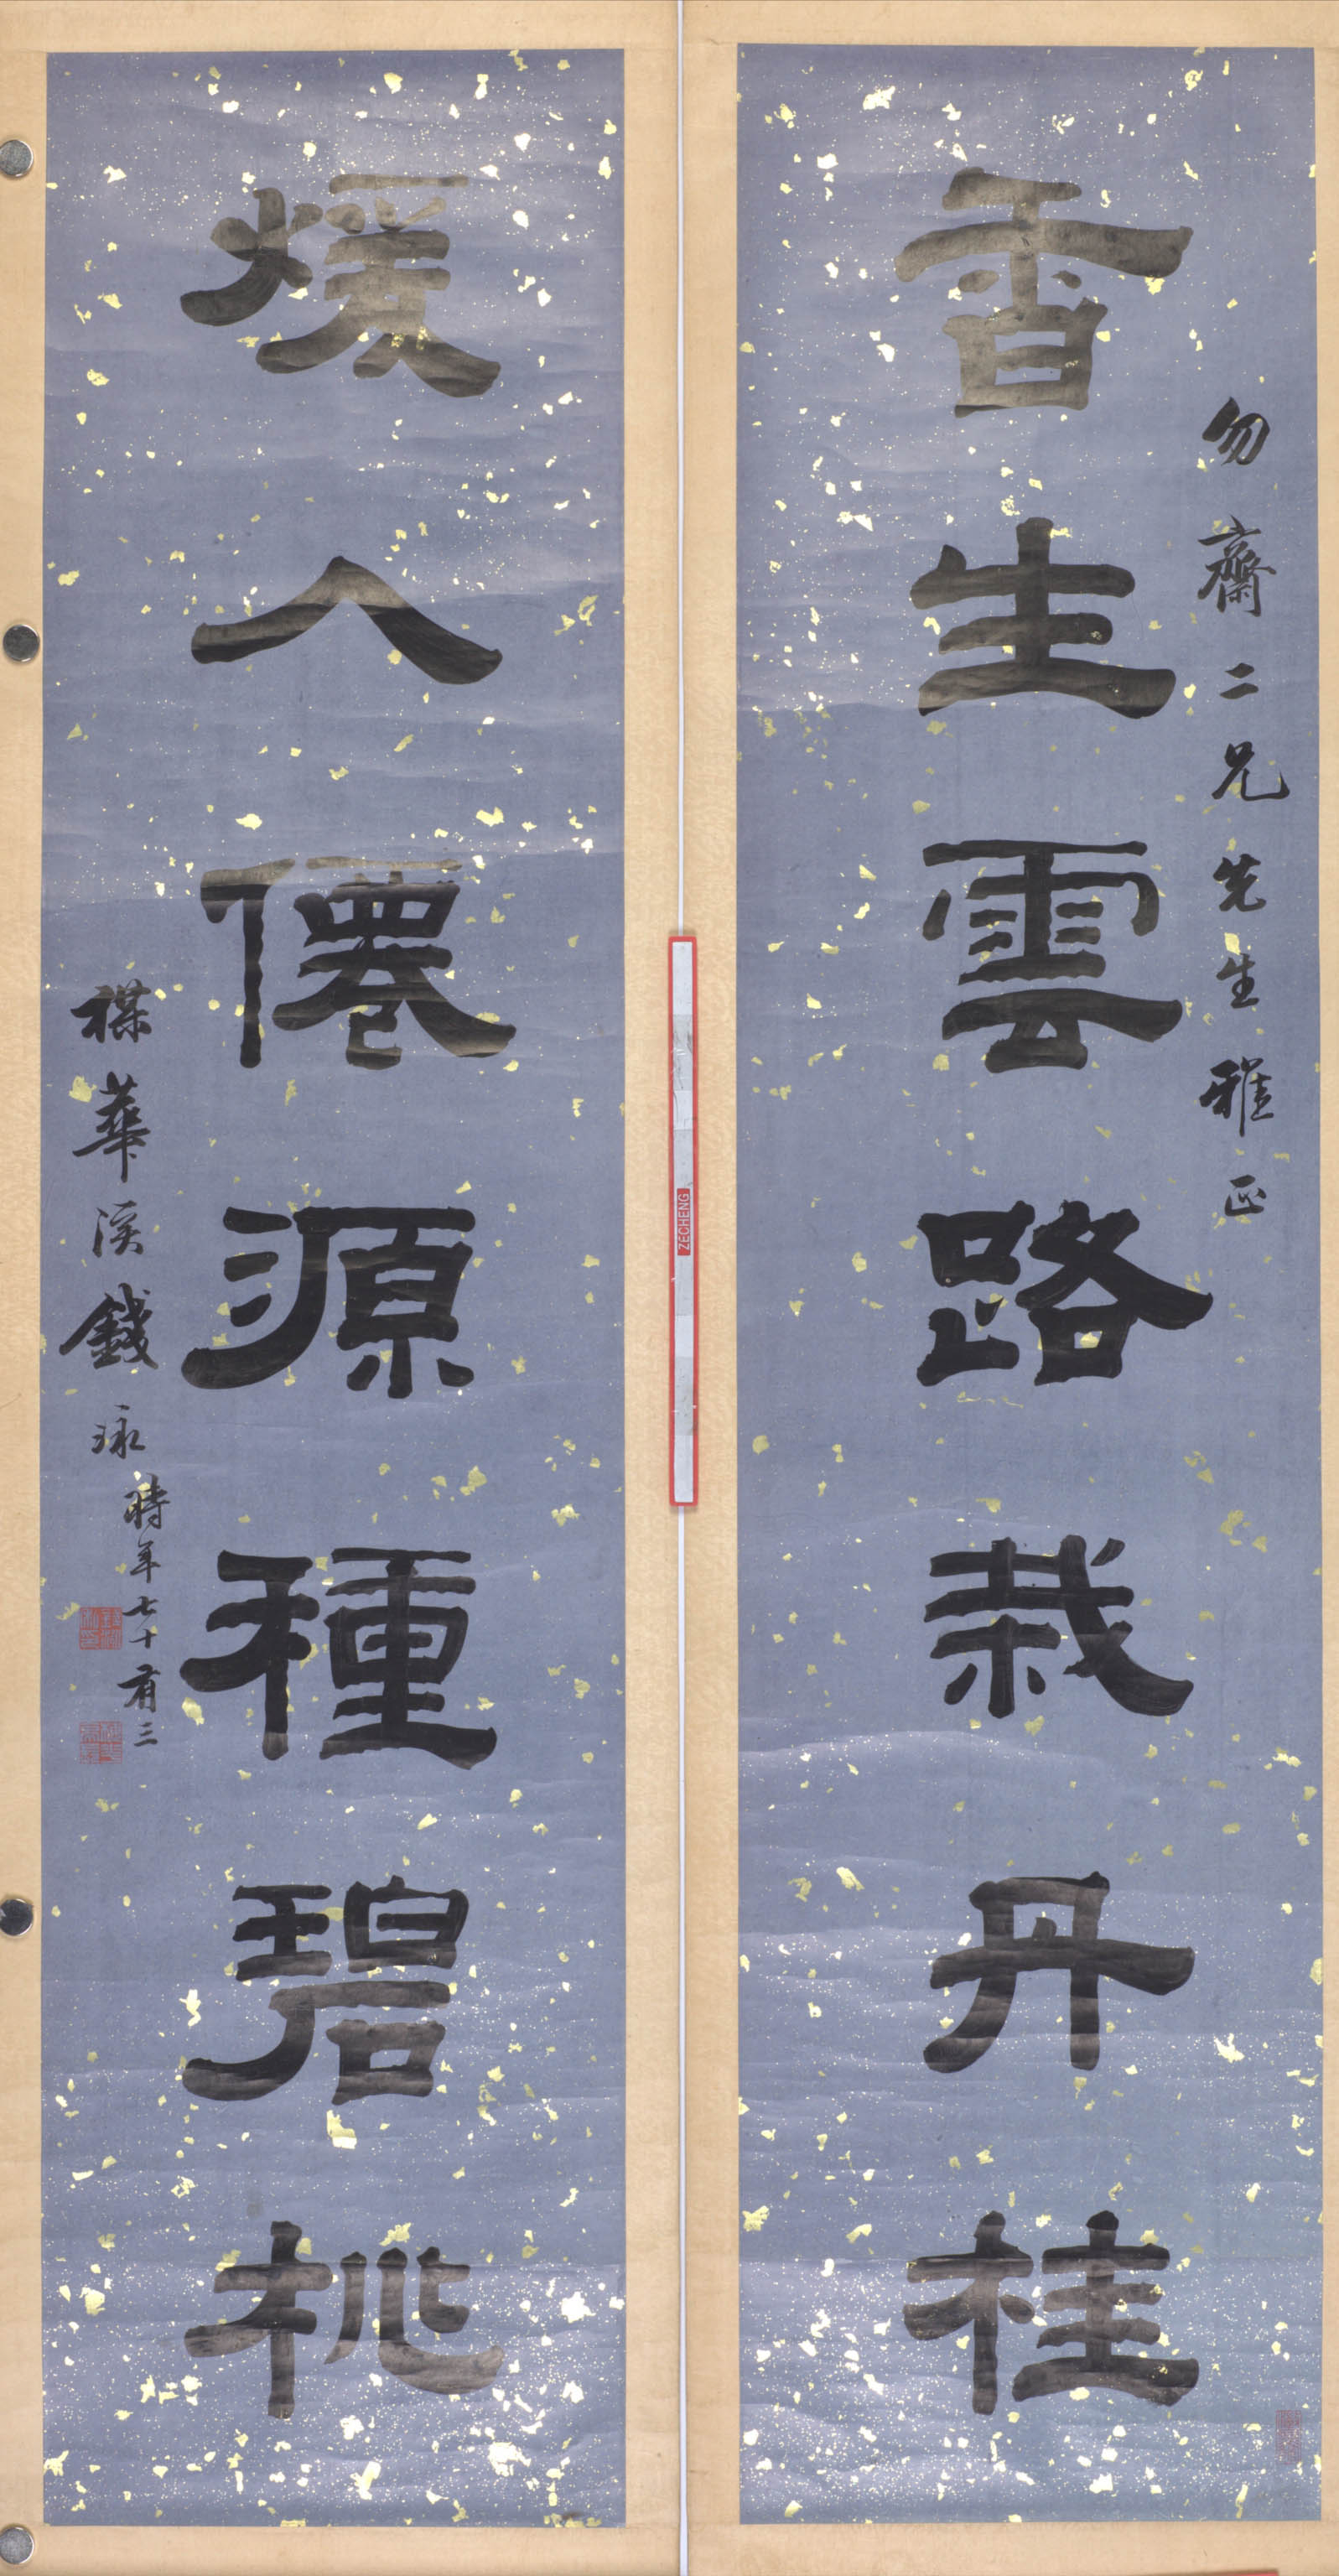 勿齋二兄先生雅正
香生雲路栽丹桂
煖入僊源種碧桃
楳華溪錢泳時年七十有三
ZECHENG